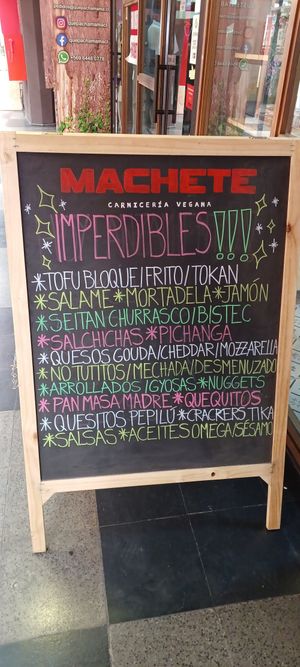 quepachamama.cl
quepachamama.cl
+569 6448 0778
MACHETE
CARNICERÍA VEGANA
IMPERDIBLES!!!
*TOFU BLOQUE/FRITO/TOKAN
*SALAME *MORTADELA *JAMÓN
*SEITAN CHURRASCO/BISTEC
*SALCHICHAS *PICHANGA
*QUESOS GOUDA/CHEDDAR/MOZZARELLA
*NO TUTITOS/MECHADA/DESMENUZADO
*ARROLLADOS/GYOSAS *NUGGETS
*PAN MASA MADRE *QUEQUITOS
*QUESITOS PEPILÚ *CRACKERS TIKA
*SALSAS *ACEITES OMEGA/SÉSAMO